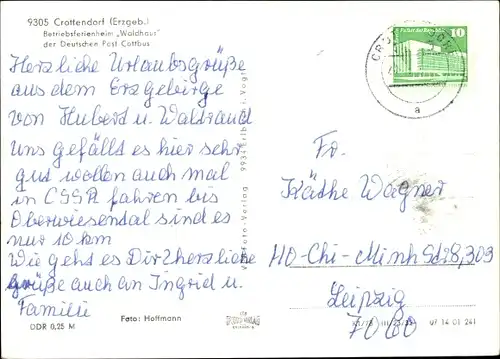 9305 Crottendorf (Erzgeb.)
Betriebsferienheim „Waldhaus"
der Deutschen Post Cottbus
Herzliche Urlaubsgrüße
aus dem Erzgebirge
von Hubert u. Waltraud
Uns gefällts es hier sehr
gut wollen auch mal
in CSSR fahren bis
Oberwiesental sind es
nur 10 km
Wie geht es Dir? herzliche
Grüße auch an Ingrid u.
Familie
DDR 0,25 M
Foto: Hoffmann
Foto-Verlag
10
a
Fr.
Käthe Wagner
HO-Chi-Minh Str. 8, 309
Leipzig
7060
07 14 01 241